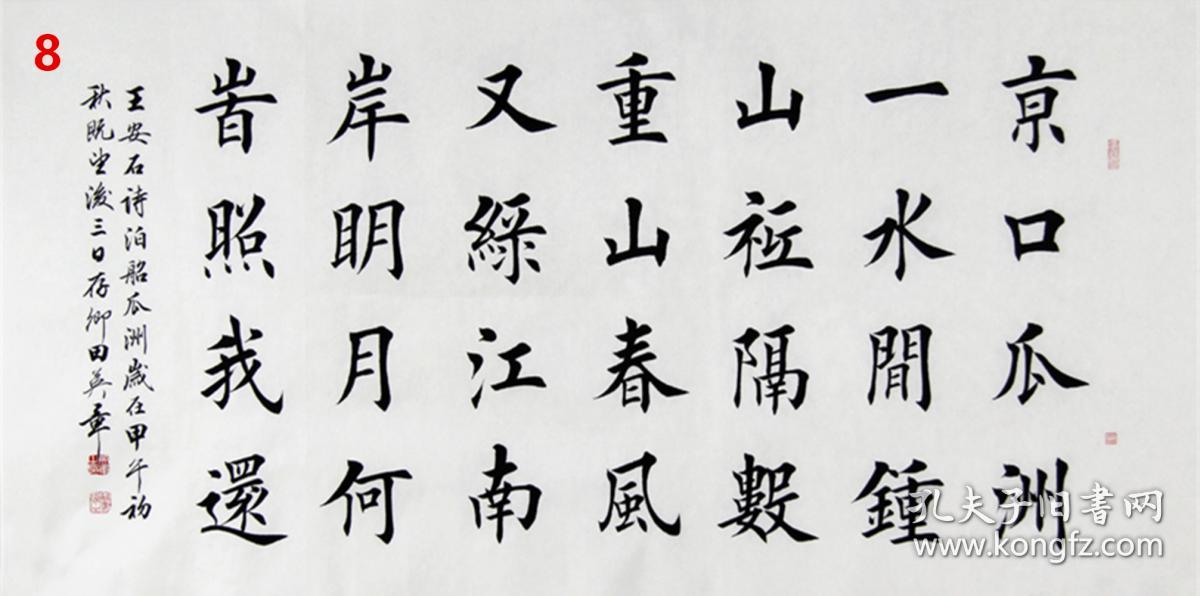 8
京口瓜洲
一水間鍾
山衹隔數
重山春風
又綠江南
岸明月何
時照我還
王安石詩泊船瓜洲歲在甲午初
秋既望後三日存卿田英章
孔夫子旧书网
www.kongfz.com